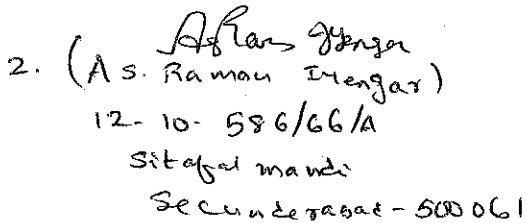 2. (A S. Raman Iyengar)
12-10-586/66/A
Sitafal mandi
Secunderabad-500061